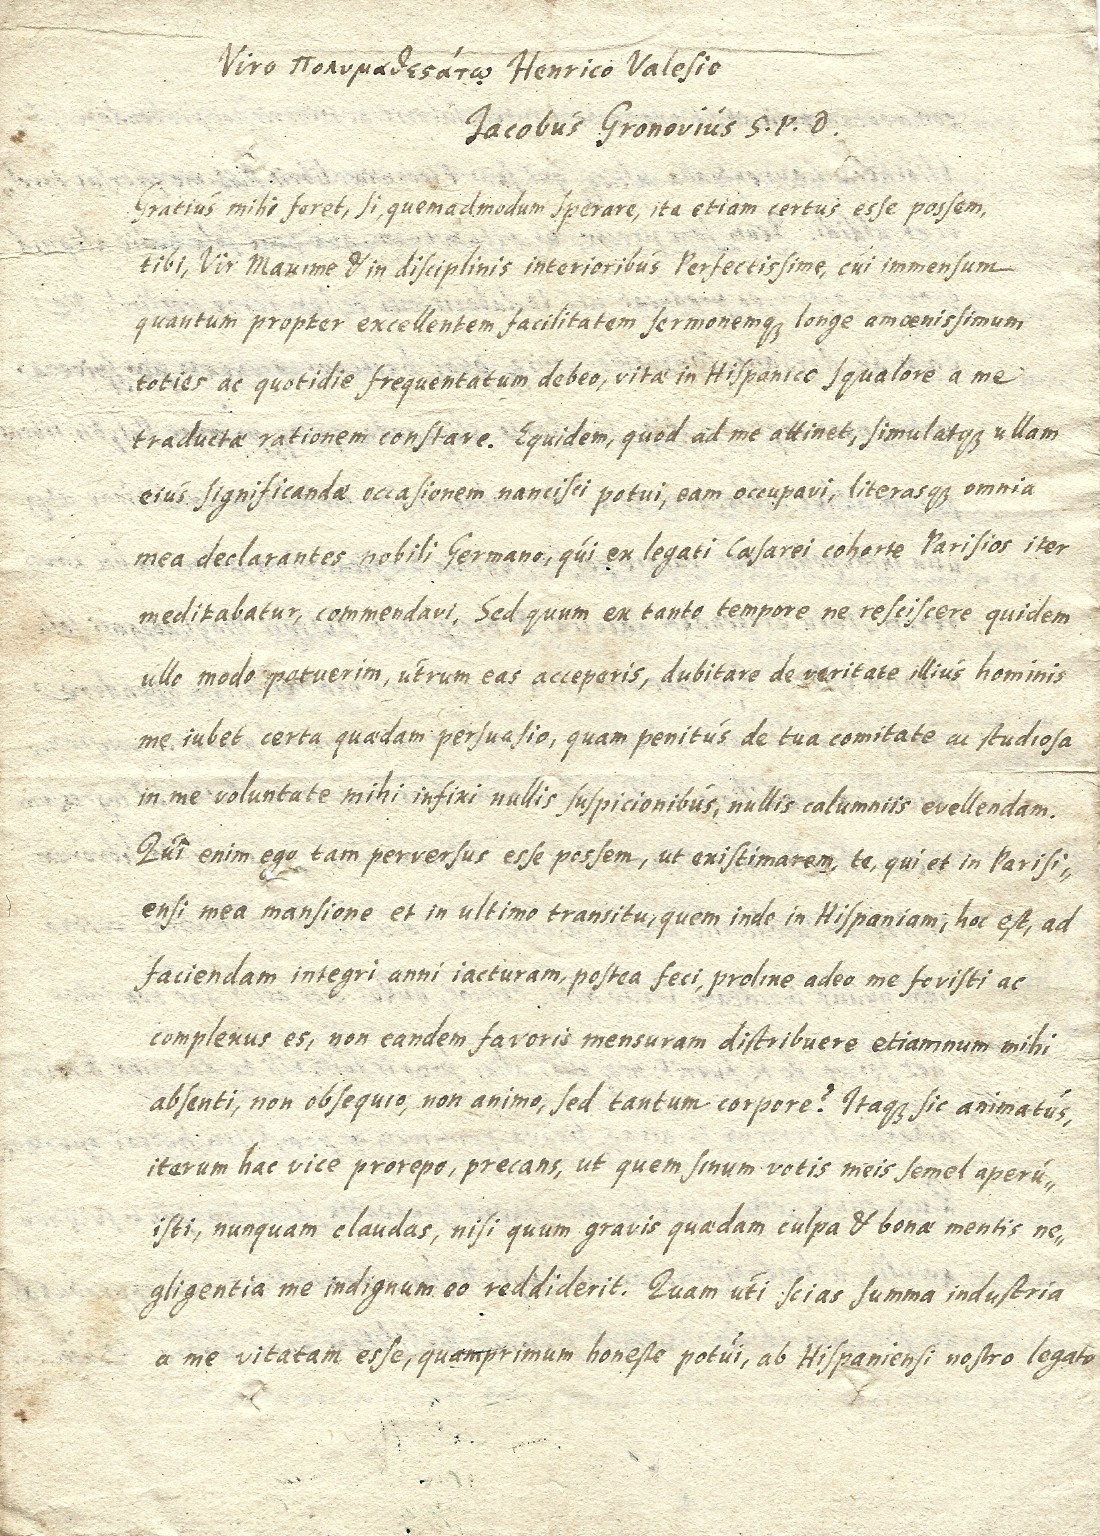 Viro πολυμαθεστάτῳ Henrico Valesio
Jacobus Gronovius S. P. D.
Gratius mihi foret, si, quemadmodum sperare, ita etiam certus esse possem,
tibi, Vir Maxime & in disciplinis interioribus Perfectissime, cui immensum
quantum propter excellentem facilitatem sermonemq; longe amœnissimum
toties ac quotidie frequentatum debeo, vitæ in Hispanico squalore a me
traductæ rationem constare. Equidem, quod ad me attinet, simulatq; ullam
eius significandæ occasionem nancisci potui, eam occupavi, literasq; omnia
mea declarantes nobili Germano, qui ex legati Cæsarei cohorte Parisios iter
meditabatur, commendavi. Sed quum ex tanto tempore ne resciscere quidem
ullo modo potuerim, utrum eas acceperis, dubitare de veritate illius hominis
me iubet certa quædam persuasio, quam penitus de tua comitate ac studiosa
in me voluntate mihi infixi nullis suspicionibus, nullis calumniis evellendam.
Qui enim ego tam perversus esse possem, ut existimarem, te, qui et in Parisi„
ensi mea mansione et in ultimo transitu, quem inde in Hispaniam, hoc est, ad
faciendam integri anni iacturam, postea feci, prolixe adeo me fovisti ac
complexus es, non eandem favoris mensuram distribuere etiamnum mihi
absenti, non obsequio, non animo, sed tantum corpore? Itaq; sic animatus,
iterum hac vice prorepo, precans, ut quem sinum votis meis semel aperu„
isti, nunquam claudas, nisi quum gravis quædam culpa & bonæ mentis ne„
gligentia me indignum eo reddiderit. Quam uti scias summa industria
a me vitatam esse, quamprimum honeste potui, ab Hispaniensi nostro legato